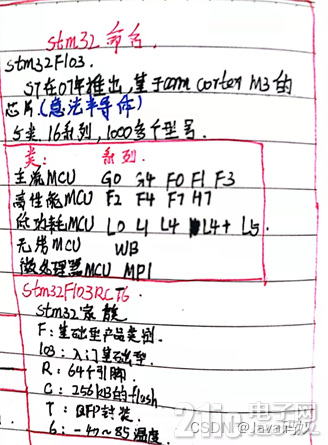 stm32 命名
stm32F103.
ST在07年推出,基于arm cortex M3的
芯片.(意法半导体)
5类. 16系列, 1000多个型号.
类: 系列.
主流MCU G0 G4 F0 F1 F3
高性能MCU F2 F4 F7 H7
低功耗MCU L0 L1 L4 L4+ L5.
无线MCU WB
微处理器MCU MP1
Stm32F103RCT6.
Stm32家族
F: 基础型产品类别.
103: 入门基础型.
R: 64个引脚.
C: 256kB的flash
T: QFP封装.
6: -40~85温度.
21ic电子网
CSDN @Java小狄